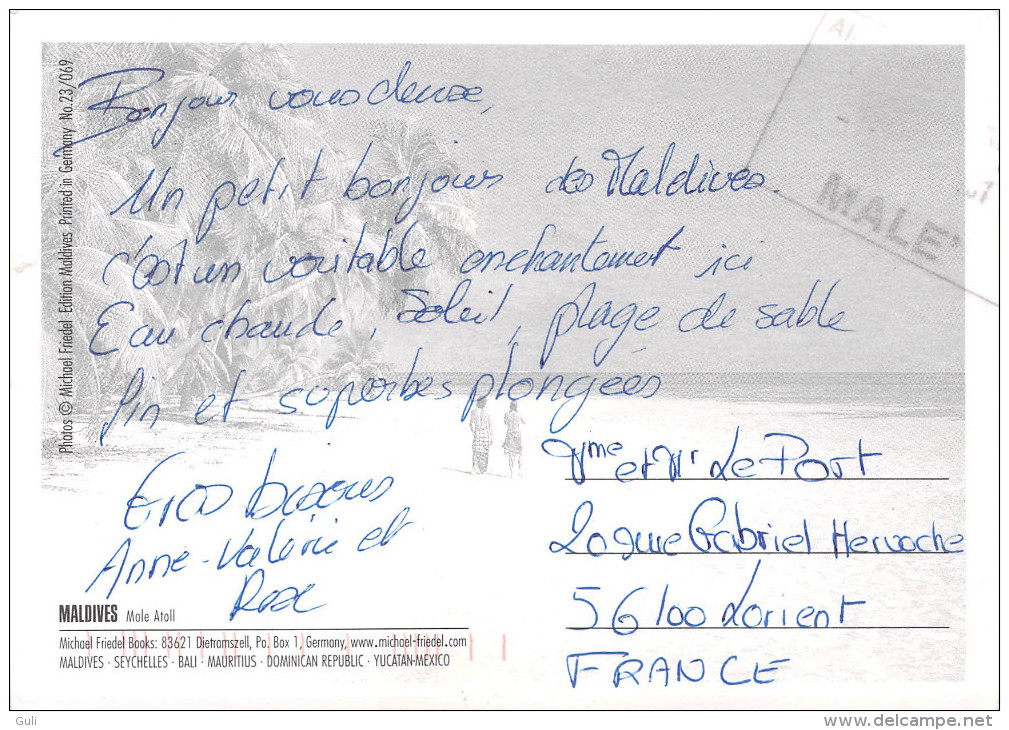 Photos © Michael Friedel Edition Maldives Printed in Germany No.23/069
Bonjour vous deux,
Un petit bonjour des Maldives.
c'est un véritable enchantement ici
Eau chaude, Soleil, plage de sable
fin et superbes plongées
Gros bisous
Anne-Valérie et
MALE'
Mme et Mr Le Port
20 rue Gabriel Hervoche
56100 Lorient
FRANCE
MALDIVES Male Atoll
Michael Friedel Books: 83621 Dietramszell, Po. Box 1, Germany, www.michael-friedel.com
MALDIVES · SEYCHELLES · BALI · MAURITIUS · DOMINICAN REPUBLIC · YUCATAN-MEXICO
Guli
delcampe.net